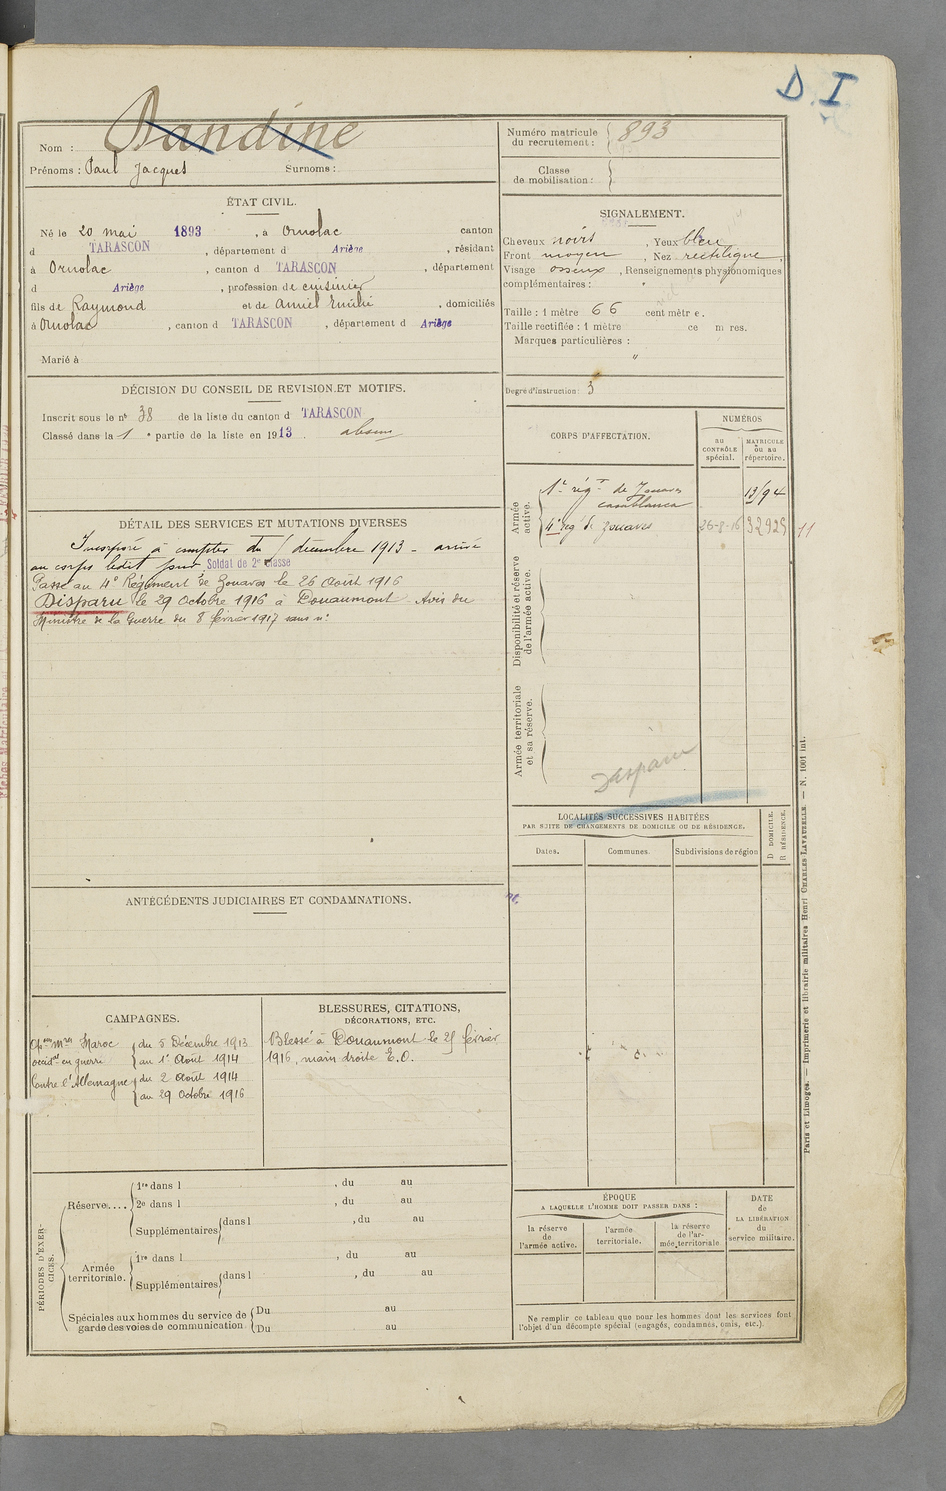 D. I
Nom : Dandine
Prénoms : Paul Jacques Surnoms :
Numéro matricule du recrutement : 893
Classe de mobilisation :
ÉTAT CIVIL.
Né le 20 mai 1893, à Ornolac canton
d TARASCON, département d Ariège, résidant
à Ornolac, canton d TARASCON, département
d Ariège, profession de cuisinier
fils de Raymond et de Anniel Emilie, domiciliés
à Ornolac, canton d TARASCON, département d Ariège
Marié à
SIGNALEMENT.
Cheveux noirs, Yeux bleu
Front moyen, Nez rectiligne,
Visage osseux, Renseignements physionomiques
complémentaires :
Taille : 1 mètre 66 centimètre.
Taille rectifiée : 1 mètre ce m res.
Marques particulières :
"
Degré d'instruction : 3
DÉCISION DU CONSEIL DE REVISION ET MOTIFS.
Inscrit sous le n° 38 de la liste du canton d TARASCON
Classé dans la 1e partie de la liste en 1913. absent
CORPS D'AFFECTATION.
NUMÉROS
au CONTRÔLE spécial.
MATRICULE ou au répertoire.
Armée active.
1er régt de Zouaves 13194
Casablanca
4e rég de Zouaves 26-8-16 32925 11
Disponibilité et réserve de l'armée active.
Armée territoriale et sa réserve.
Disparu
DÉTAIL DES SERVICES ET MUTATIONS DIVERSES
Incorporé à compter du décembre 1913 - arrivé
au corps ledit jour Soldat de 2e classe
Passé au 4e Régiment de Zouaves le 26 Août 1916
Disparu le 29 Octobre 1916 à Douaumont. Avis du
Ministre de la Guerre du 8 février 1917 sans n°
LOCALITÉS SUCCESSIVES HABITÉES
PAR SUITE DE CHANGEMENTS DE DOMICILE OU DE RÉSIDENCE.
Dates. Communes. Subdivisions de région
D DOMICILE.
R RÉSIDENCE.
ANTÉCÉDENTS JUDICIAIRES ET CONDAMNATIONS.
CAMPAGNES.
Maroc du 5 Décembre 1913
occidal en guerre au 1er Août 1914
Contre l'Allemagne du 2 Août 1914
au 29 Octobre 1916
BLESSURES, CITATIONS,
DÉCORATIONS, ETC.
Blessé à Douaumont le 25 février
1916, main droite E.O.
PÉRIODES D'EXERCICES.
Réserve.... 1re dans l , du au
2e dans l , du au
Supplémentaires dans l , du au
Armée territoriale. 1re dans l , du au
Supplémentaires dans l , du au
Spéciales aux hommes du service de garde des voies de communication. Du au
Du au
ÉPOQUE
A LAQUELLE L'HOMME DOIT PASSER DANS :
la réserve de l'armée active.
l'armée territoriale.
la réserve de l'armée territoriale
DATE de LA LIBÉRATION du service militaire.
Ne remplir ce tableau que pour les hommes dont les services font
l'objet d'un décompte spécial (engagés, condamnés, omis, etc.).
Paris et Limoges. — Imprimerie et librairie militaires Henri CHARLES-LAVAUZELLE. — N. 1001 int.